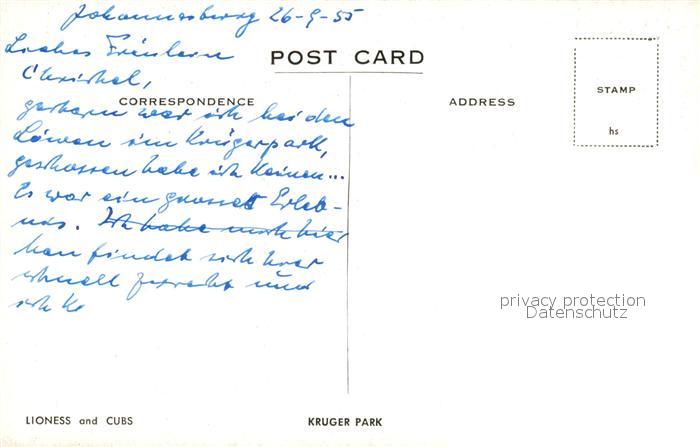 Johannesburg 26-9-55
Liebes Fräulein
Christel,
POST CARD
CORRESPONDENCE
ADDRESS
STAMP
hs
gestern war ich bei den
Löwen im Krügerpark,
geschossen habe ich keinen...
Es war ein grosses Erleb-
nis. Ich habe mich hier
man findet sich hier
schnell zurecht und
ich
privacy protection
Datenschutz
LIONESS and CUBS
KRUGER PARK